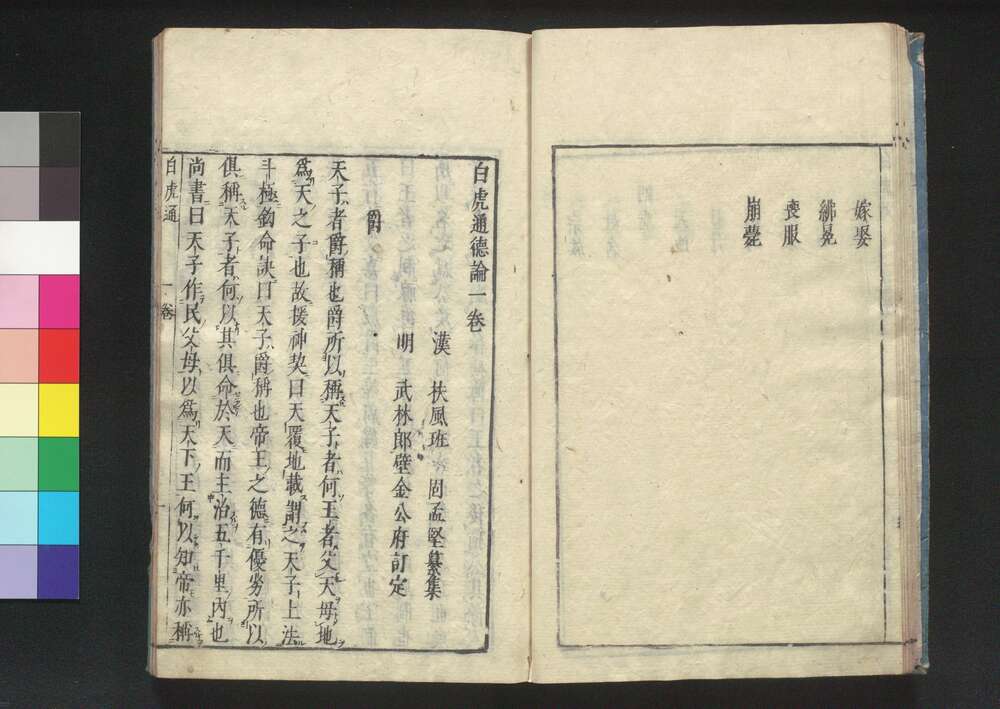 嫁娶
紼冕
喪服
崩薨
白虎通德論一卷
漢 扶風班 固孟堅纂集
明 武林郎壁金公府訂定
爵
天子者爵稱也爵所以稱天子者何王者父天母地
爲天之子也故援神契曰天覆地載謂之天子上法
斗極鈎命訣曰天子爵稱也帝王之德有優劣所以
俱稱天子者何以其俱命於天而主治五千里內也
尚書曰天子作民父母以爲天下王何以知帝亦稱
白虎通 一卷